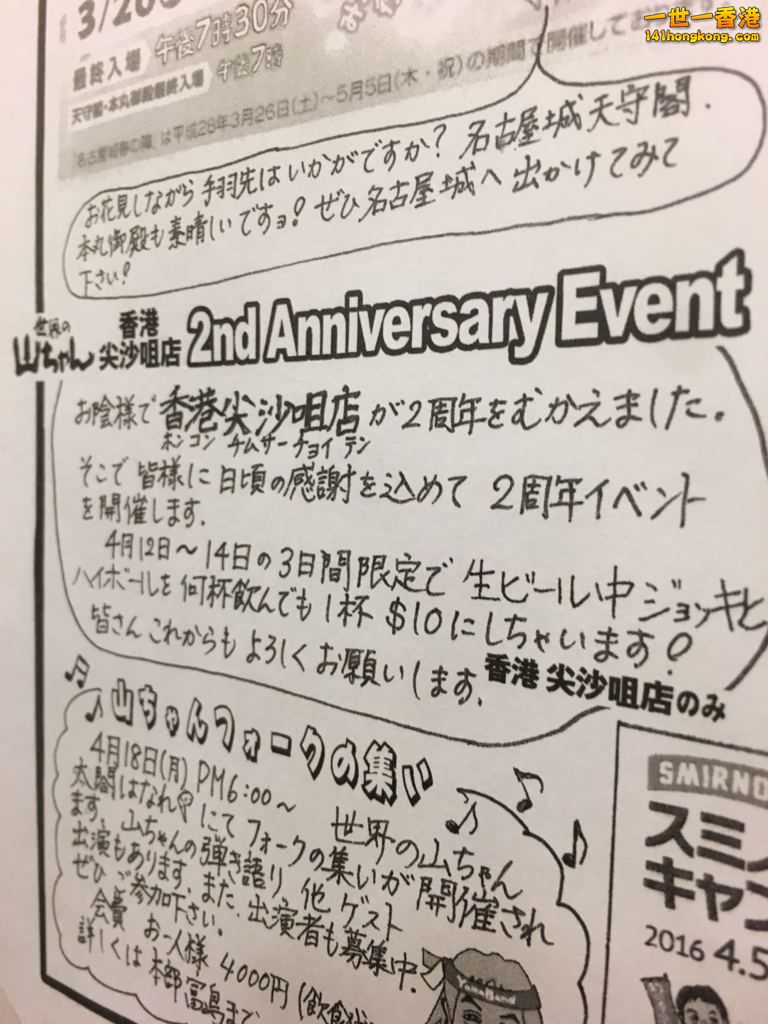 一世一香港
141hongkong.com
3/20
最終入場 午後7時30分
天守閣・本丸御殿最終入場 午後7時
「名古屋城春の陣」は平成28年3月26日(土)~5月5日(木・祝)の期間で開催して
お花見しながら 手羽先は いかがですか? 名古屋城 天守閣、
本丸御殿も素晴しいですョ! ぜひ名古屋城へ 出かけてみて
下さい!
世界の山ちゃん 香港尖沙咀店 2nd Anniversary Event
お陰様で 香港尖沙咀店 が2周年をむかえました。
ホンコン チムサーチョイ テン
そこで 皆様に 日頃の感謝を込めて 2周年イベント
を開催します。
4月12日~14日の3日間限定で 生ビール中ジョッキと
ハイボールを 何杯飲んでも1杯 $10にしちゃいます!
皆さん これからも よろしく お願いします。
香港 尖沙咀店のみ
山ちゃんフォークの集い
4月18日(月) PM6:00~ 世界の山ちゃん
太閤はなれ にて フォークの集いが 開催され
ます。山ちゃんの弾き語り 他 ゲスト
出演もあります。また、出演者も募集中。
ぜひ ご参加下さい。
会費 お一人様 4000円(飲食
詳しくは 本部 冨島まで
YamaBand
SMIRNO
スミノ
キャン
2016 4.5